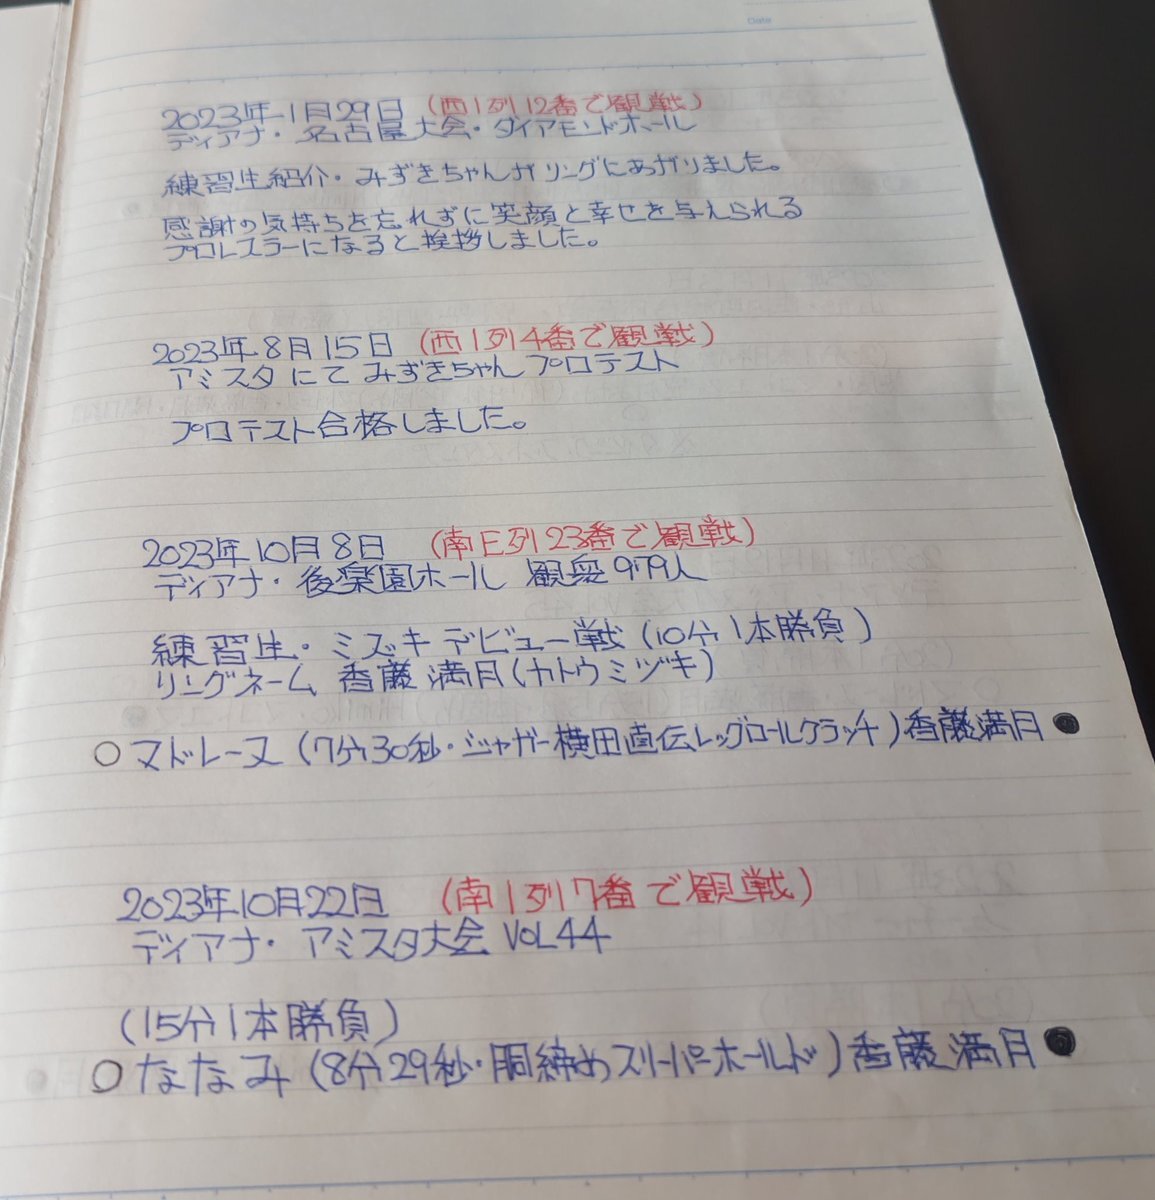 Date
2023年1月29日 (西1列12番で観戦)
ディアナ・名古屋大会・ダイアモンドホール
練習生紹介・みずきちゃんがリングにあがりました。
感謝の気持ちを忘れずに笑顔と幸せを与えられる
プロレスラーになると挨拶しました。
2023年8月15日 (西1列4番で観戦)
アミスタにてみずきちゃんプロテスト
プロテスト合格しました。
2023年10月8日 (南E列23番で観戦)
ディアナ・後楽園ホール 観衆979人
練習生・ミズキデビュー戦(10分1本勝負)
リングネーム 香藤満月(カトウミヅキ)
○マドレーヌ(7分30秒・ジャガー横田直伝レッグロールクラッチ)香藤満月●
2023年10月22日 (南1列17番で観戦)
ディアナ・アミスタ大会 VOL44
(15分1本勝負)
○ななみ(8分29秒・胴締めスリーパーホールド)香藤満月●